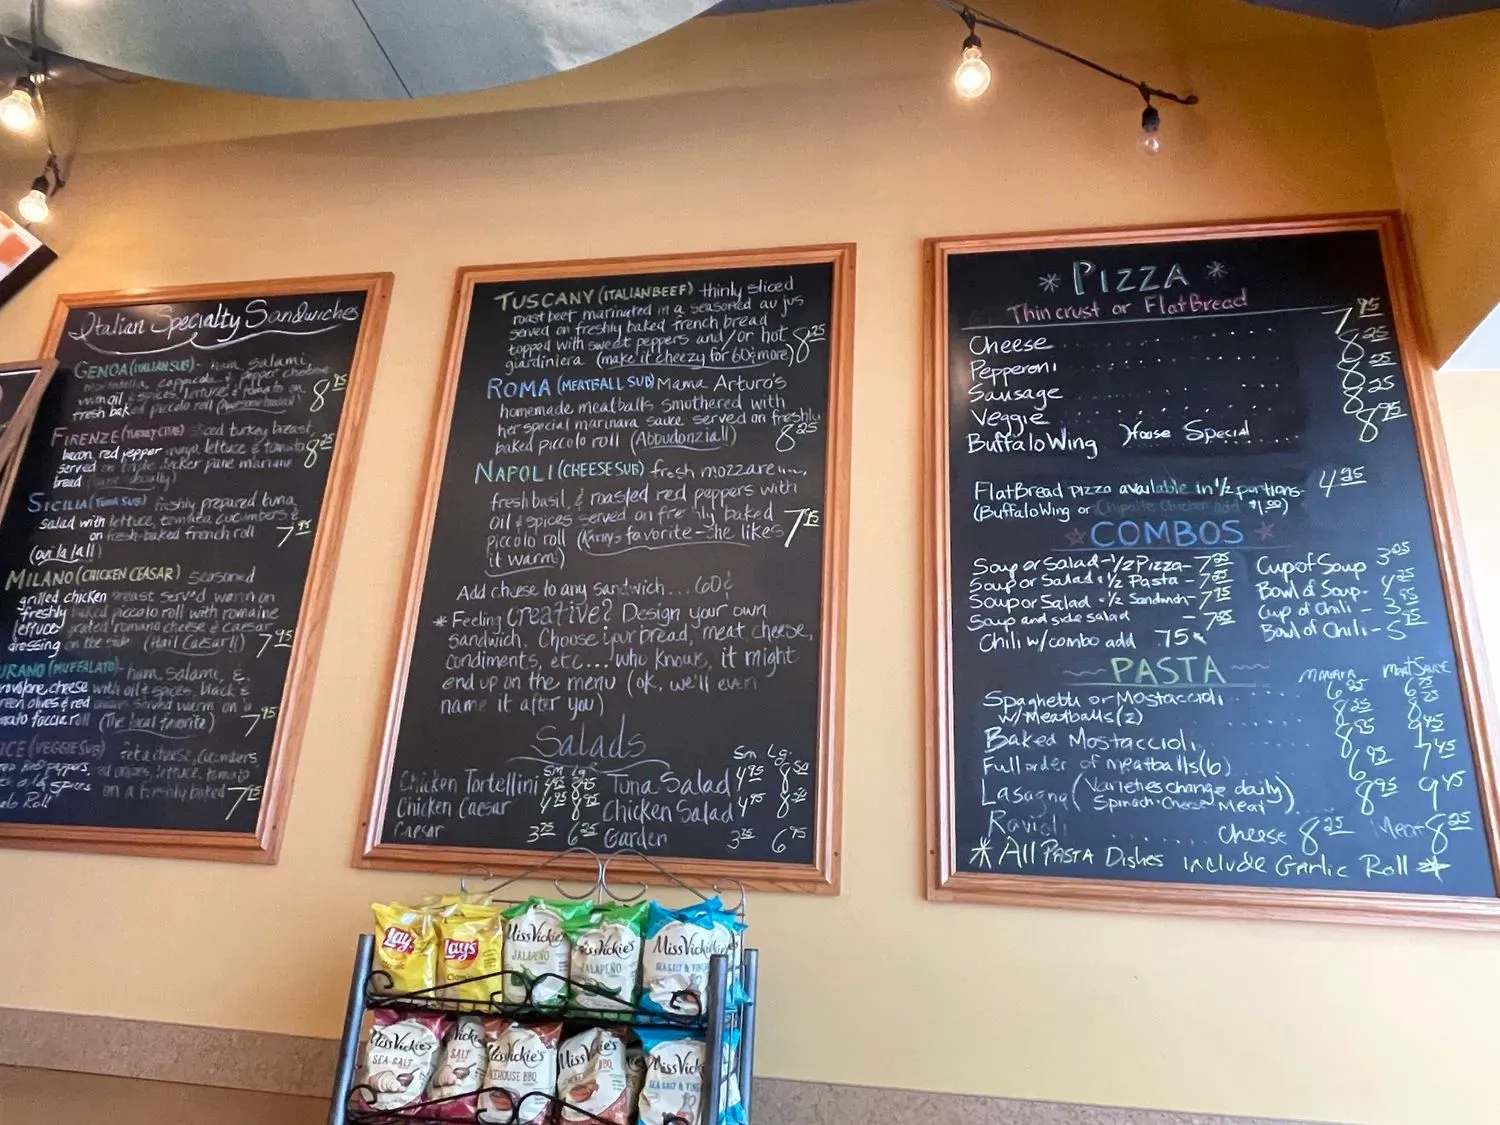 Italian Specialty Sandwiches
GENOA (ITALIAN SUB) - ham, salami,
mortadella, cappicola, & pepper cheese
with oil & spices, lettuce & tomato on
fresh baked piccolo roll 8
FIRENZE (TURKEY CLUB) sliced turkey breast,
bacon, red pepper mayo, lettuce & tomato
served on triple decker pane marino 8 25
bread
SICILIA (TUNA SUB) freshly prepared tuna
salad with lettuce, tomato, cucumbers &
on fresh-baked french roll 7 95
(ooh la la!!)
MILANO (CHICKEN CEASAR) seasoned
grilled chicken breast served warm on
freshly baked piccolo roll with romaine
lettuce grated romano cheese & caesar
dressing on the side (Hail Caesar!!) 7 95
URANO (MUFFALATO) - ham, salami, &
rovolone cheese with oil & spices, black &
reen olives & red onions served warm on a
mato foccia roll (The local favorite) 7 95
ICE (VEGGIE SUB) feta cheese, cucumbers,
red peppers, red onions, lettuce, tomato
oil & spices on a freshly baked
Roll 7 95
TUSCANY (ITALIAN BEEF) thinly sliced
roast beef marinated in a seasoned au jus
served on freshly baked french bread
topped with sweet peppers and/or hot
giardiniera (make it cheezy for 60¢ more) 8 25
ROMA (MEATBALL SUB) Mama Arturo's
homemade meatballs smothered with
her special marinara sauce served on freshly
baked piccolo roll (Abbudonzia!!) 8 25
NAPOLI (CHEESE SUB) fresh mozzare
fresh basil, & roasted red peppers with
oil & spices served on freshly baked
piccolo roll (Kathy's favorite - she likes 7 95
it warm)
Add cheese to any sandwich... 60¢
* Feeling creative? Design your own
sandwich. Choose your bread, meat, cheese,
condiments, etc... who knows, it might
end up on the menu (ok, we'll even
name it after you)
Salads
Sm Lg Sm Lg.
Chicken Tortellini 4 95 8 95 Tuna Salad 4 95 8 50
Chicken Caesar 4 95 8 95 Chicken Salad 4 95 8 50
Caesar 3 75 6 25 Garden 3 75 6 95
* PIZZA *
Thin crust or FlatBread
Cheese 7 95
Pepperoni 8 25
Sausage 8 25
Veggie 8 25
Buffalo Wing House Special 8 95
FlatBread pizza available in 1/2 portions- 4 95
(Buffalo Wing or Chipotle Chicken add $1.00)
* COMBOS *
Soup or Salad - 1/2 Pizza - 7 95 Cup of Soup 3 05
Soup or Salad & 1/2 Pasta - 7 95 Bowl of Soup - 4 25
Soup or Salad & 1/2 Sandwich - 7 95 Cup of Chili - 3 95
Soup and side salad - 7 95 Bowl of Chili - 5
Chili w/combo add .75
PASTA
MARINARA MEAT SAUCE
Spaghetti or Mostaccioli 6 25 6 75
w/Meatballs (2) 8 25 8 25
Baked Mostaccioli 8 95 9 45
Full order of meatballs (6) 6 95 7 45
Lasagna (Varieties change daily) 8 95 9 45
Spinach-Cheese Meat
Ravioli cheese 8 25 Meat 8 25
* All PASTA Dishes include Garlic Roll *
Lay's
Classic
Lay's
Classic
Miss Vickie's
JALAPEÑO
Miss Vickie's
JALAPEÑO
Miss Vickie's
SEA SALT & VINE
Miss Vickie's
SEA SALT
Vickie's
SALT
Miss Vickie's
BBQ
Miss Vickie's
BBQ
Miss Vickie's
SEA SALT & VINE